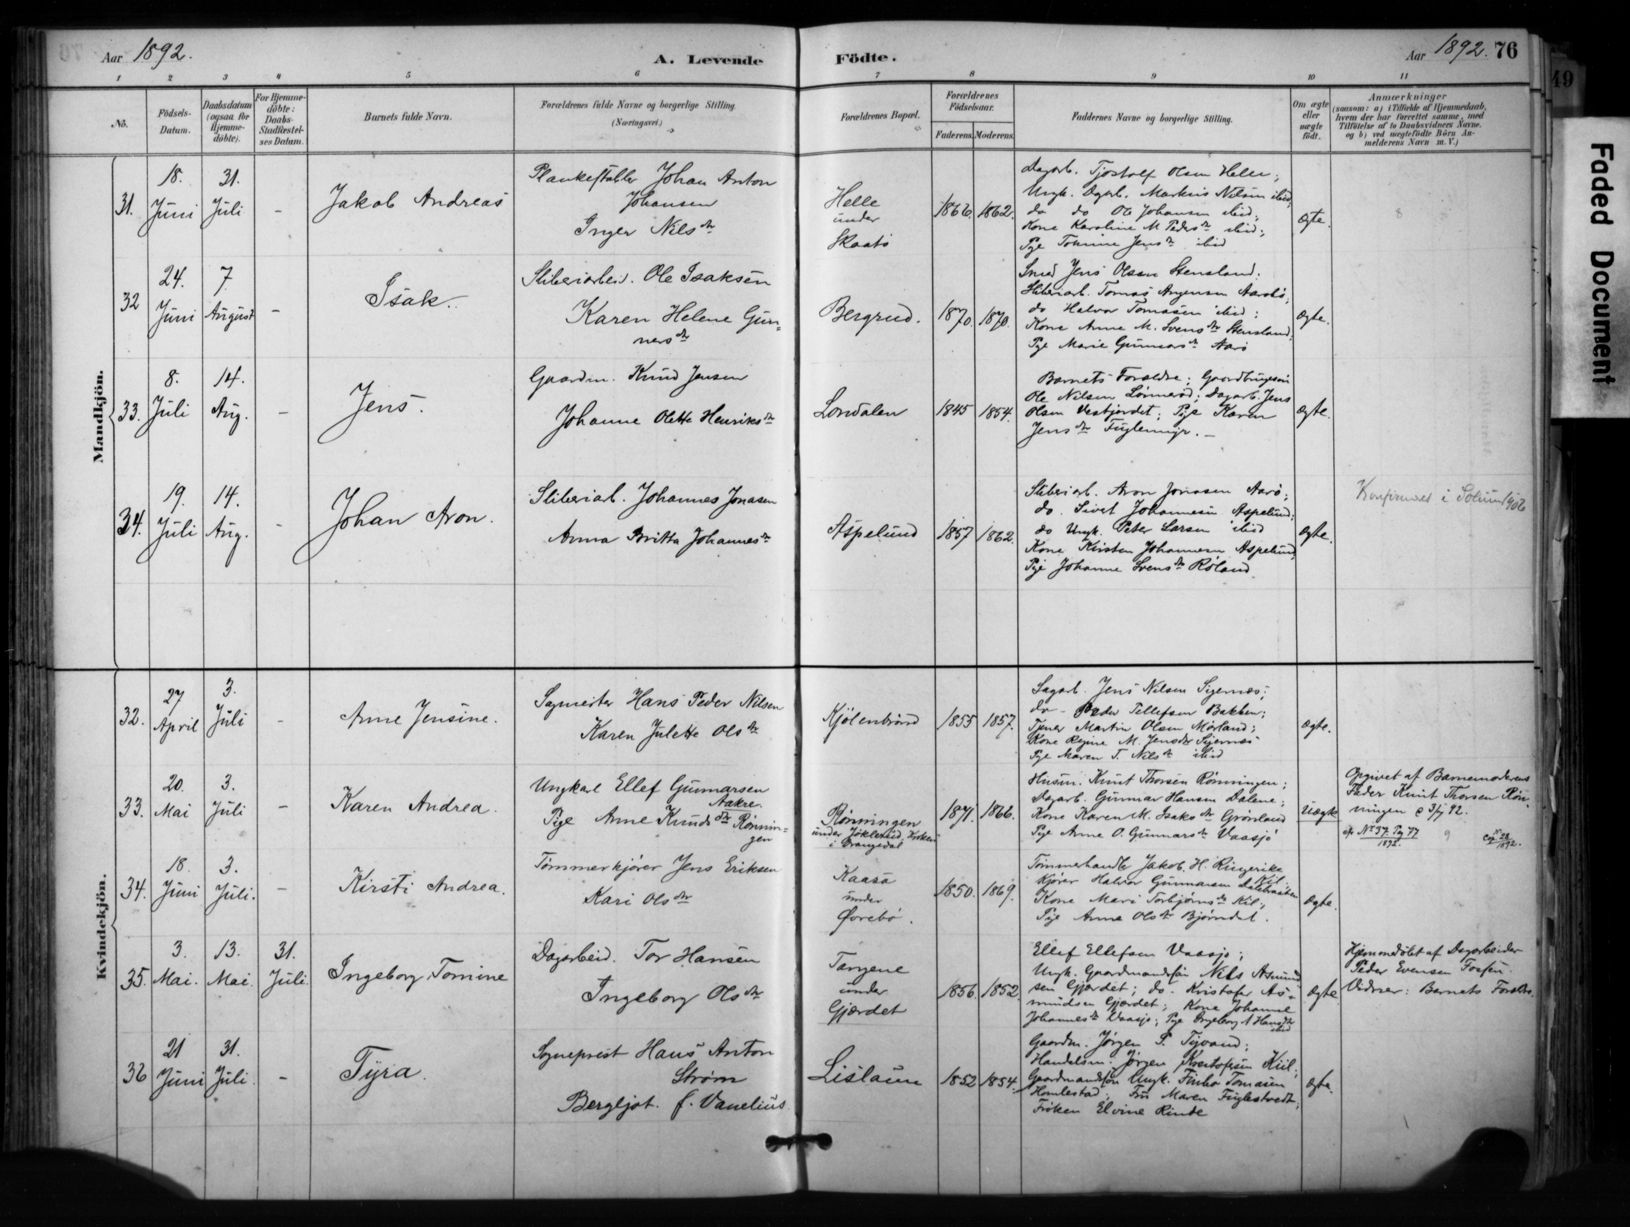 Aar 1892.
A. Levende
Födte.
Aar 1892. 76
1 2 3 4 5 6 7 8 9 10 11
No.
Födsels-Datum.
Daabsdatum (ogsaa for Hjemmedöbte).
For Hjemmedöbte: Daabs-Stadfæstelses Datum.
Barnets fulde Navn.
Forældrenes fulde Navne og borgerlige Stilling. (Næringsvei.)
Forældrenes Bopæl.
Forældrenes Födselsaar.
Faderens. Moderens.
Faddernes Navne og borgerlige Stilling.
Om ægte eller uægte födt.
Anmærkninger
(saasom: a) i Tilfælde af Hjemmedaab,
hvem der har forrettet samme, med
Tilföielse af to Daabsvidners Navne,
og b) ved uægtefödte Börn An-
melderens Navn m. V.)
Mandkjön.
31.
18. Juni
31. Juli
-
Jakob Andreas
Plankestabler Johan Anton
Johansen
Inger Nilsdtr
Helle
under
Skaatö
1866. 1862.
Dagarb. Tjostolf Olsen Helle;
Ungk. Dgarb. Markus Nilsen ibid,
do do Ole Johansen ibid;
Kone Karoline M. Pedersdtr ibid;
Pige Tomine Jensdtr ibid
Ægte.
32
24. Juni
7. August
-
Isak.
Sliberiarbeid. Ole Isaksen
Karen Helene Gun-
nersdtr
Bergrud.
1870. 1870.
Smed Jens Olsen Stensland.
Sliberiarb. Tomas Aarö;
do Halvor Tomassen ibid;
Kone Anne M. Svensdtr Stensland.
Pige Marie Gunnarsdtr Aarö
Ægte.
33.
8. Juli
14. Aug.
-
Jens.
Gaardm. Knud Jensen
Johanne Olette Henriksdtr
Londalen
1845 1854.
Barnets Forældre; Gaardbrugersøn
Ole Nilsen; Dagarb. Jens
Olsen Vestjordet; Pige Karen
Jensdtr Fuglemyr. -
Ægte.
34.
19. Juli
14. Aug.
-
Johan Aron.
Sliberiarb. Johannes Jonasen
Anna Britta Johannesdtr
Aspelund
1857 1862.
Sliberiarb. Aron Jonasen Aarö;
do. Sivert Johannesen Aspelund;
do Ungk. Peter Larsen ibid
Kone Kirsten Johannesen Aspelund,
Pige Johanne Svensdtr Röland
Ægte.
Konfirmeret i Solum 1906
Kvindekjön.
32.
27 April
3. Juli
-
Anne Jensine.
Sagmester Hans Peder Nilsen
Karen Julette Olsdtr
Kjölenbrönd
1855 1857.
Sagarb. Jens Nilsen Stjernæs;
do - Peder Tellefsen Bakken;
Tjener Martin Olsen Mörland;
Kone Regine M. Jensdtr
Pige Maren T. Nilsdtr ibid
Ægte.
33.
20. Mai
3. Juli
-
Karen Andrea.
Ungkarl Ellef Gunnarsen
Aakre.
Pige Anne Knudsdtr Rönnin-
gen
Rönningen
i Drangedal
1871. 1866.
Husm. Knut Thorsen Rönningen;
Dagarb. Gunnar Hansen Dalene;
Kone Karen M. Isaksdtr Grönsland
Pige Anne O. Gunnarsdtr Vaasjö
Uægte
Opgivet af Barnemoderens
Fader Knut Thorsen Rön-
ningen d 3/7 92.
34.
18. Juni
3. Juli.
-
Kirsti Andrea.
Tömmerkjörer Jens Eriksen
Kari Olsdtr
Kaasa
under
Övrebö.
1850. 1869.
Tömmerhandler Jakob. H. Ringerike
Kjörer Halvor Gunnarsen
Kone Mari Torbjörnsdtr Kil;
Pige Anne Olsdtr Bjorndal.
Ægte.
35.
3. Mai.
13. Mai
31. Juli.
Ingeborg Tomine
Dagarbeid. Tor Hansen
Ingeborg Olsdtr
Tangene
under
Gjærdet
1856. 1852.
Ellef Ellefsen Vaasjö;
Ungk. Gaardmandssön Nils Asmund-
sen Gjærdet; do. Kristofer As-
mundsen Gjærdet; Kone Johanne
Johannesdtr Vaasjö; Pige Ingeborg
Ægte
Hjemmedöbt af Dagarbeider
Peder Evensen
Vidner: Barnets Forældre.
36
21 Juni
31. Juli.
-
Tyra.
Sogneprest Hans Anton
Ström
Bergljot f. Vanelius
Lislaun
1852 1854.
Gaardm. Jörgen P. Tyvand;
Handelsm. Jörgen Kristofersen Kiil,
Gaardmandssön Ungk. Finbo Tomasen
Homlestad; Fru Maren Fuglestvedt;
Fröken Elvine Rinde
Ægte.
49
Faded Document